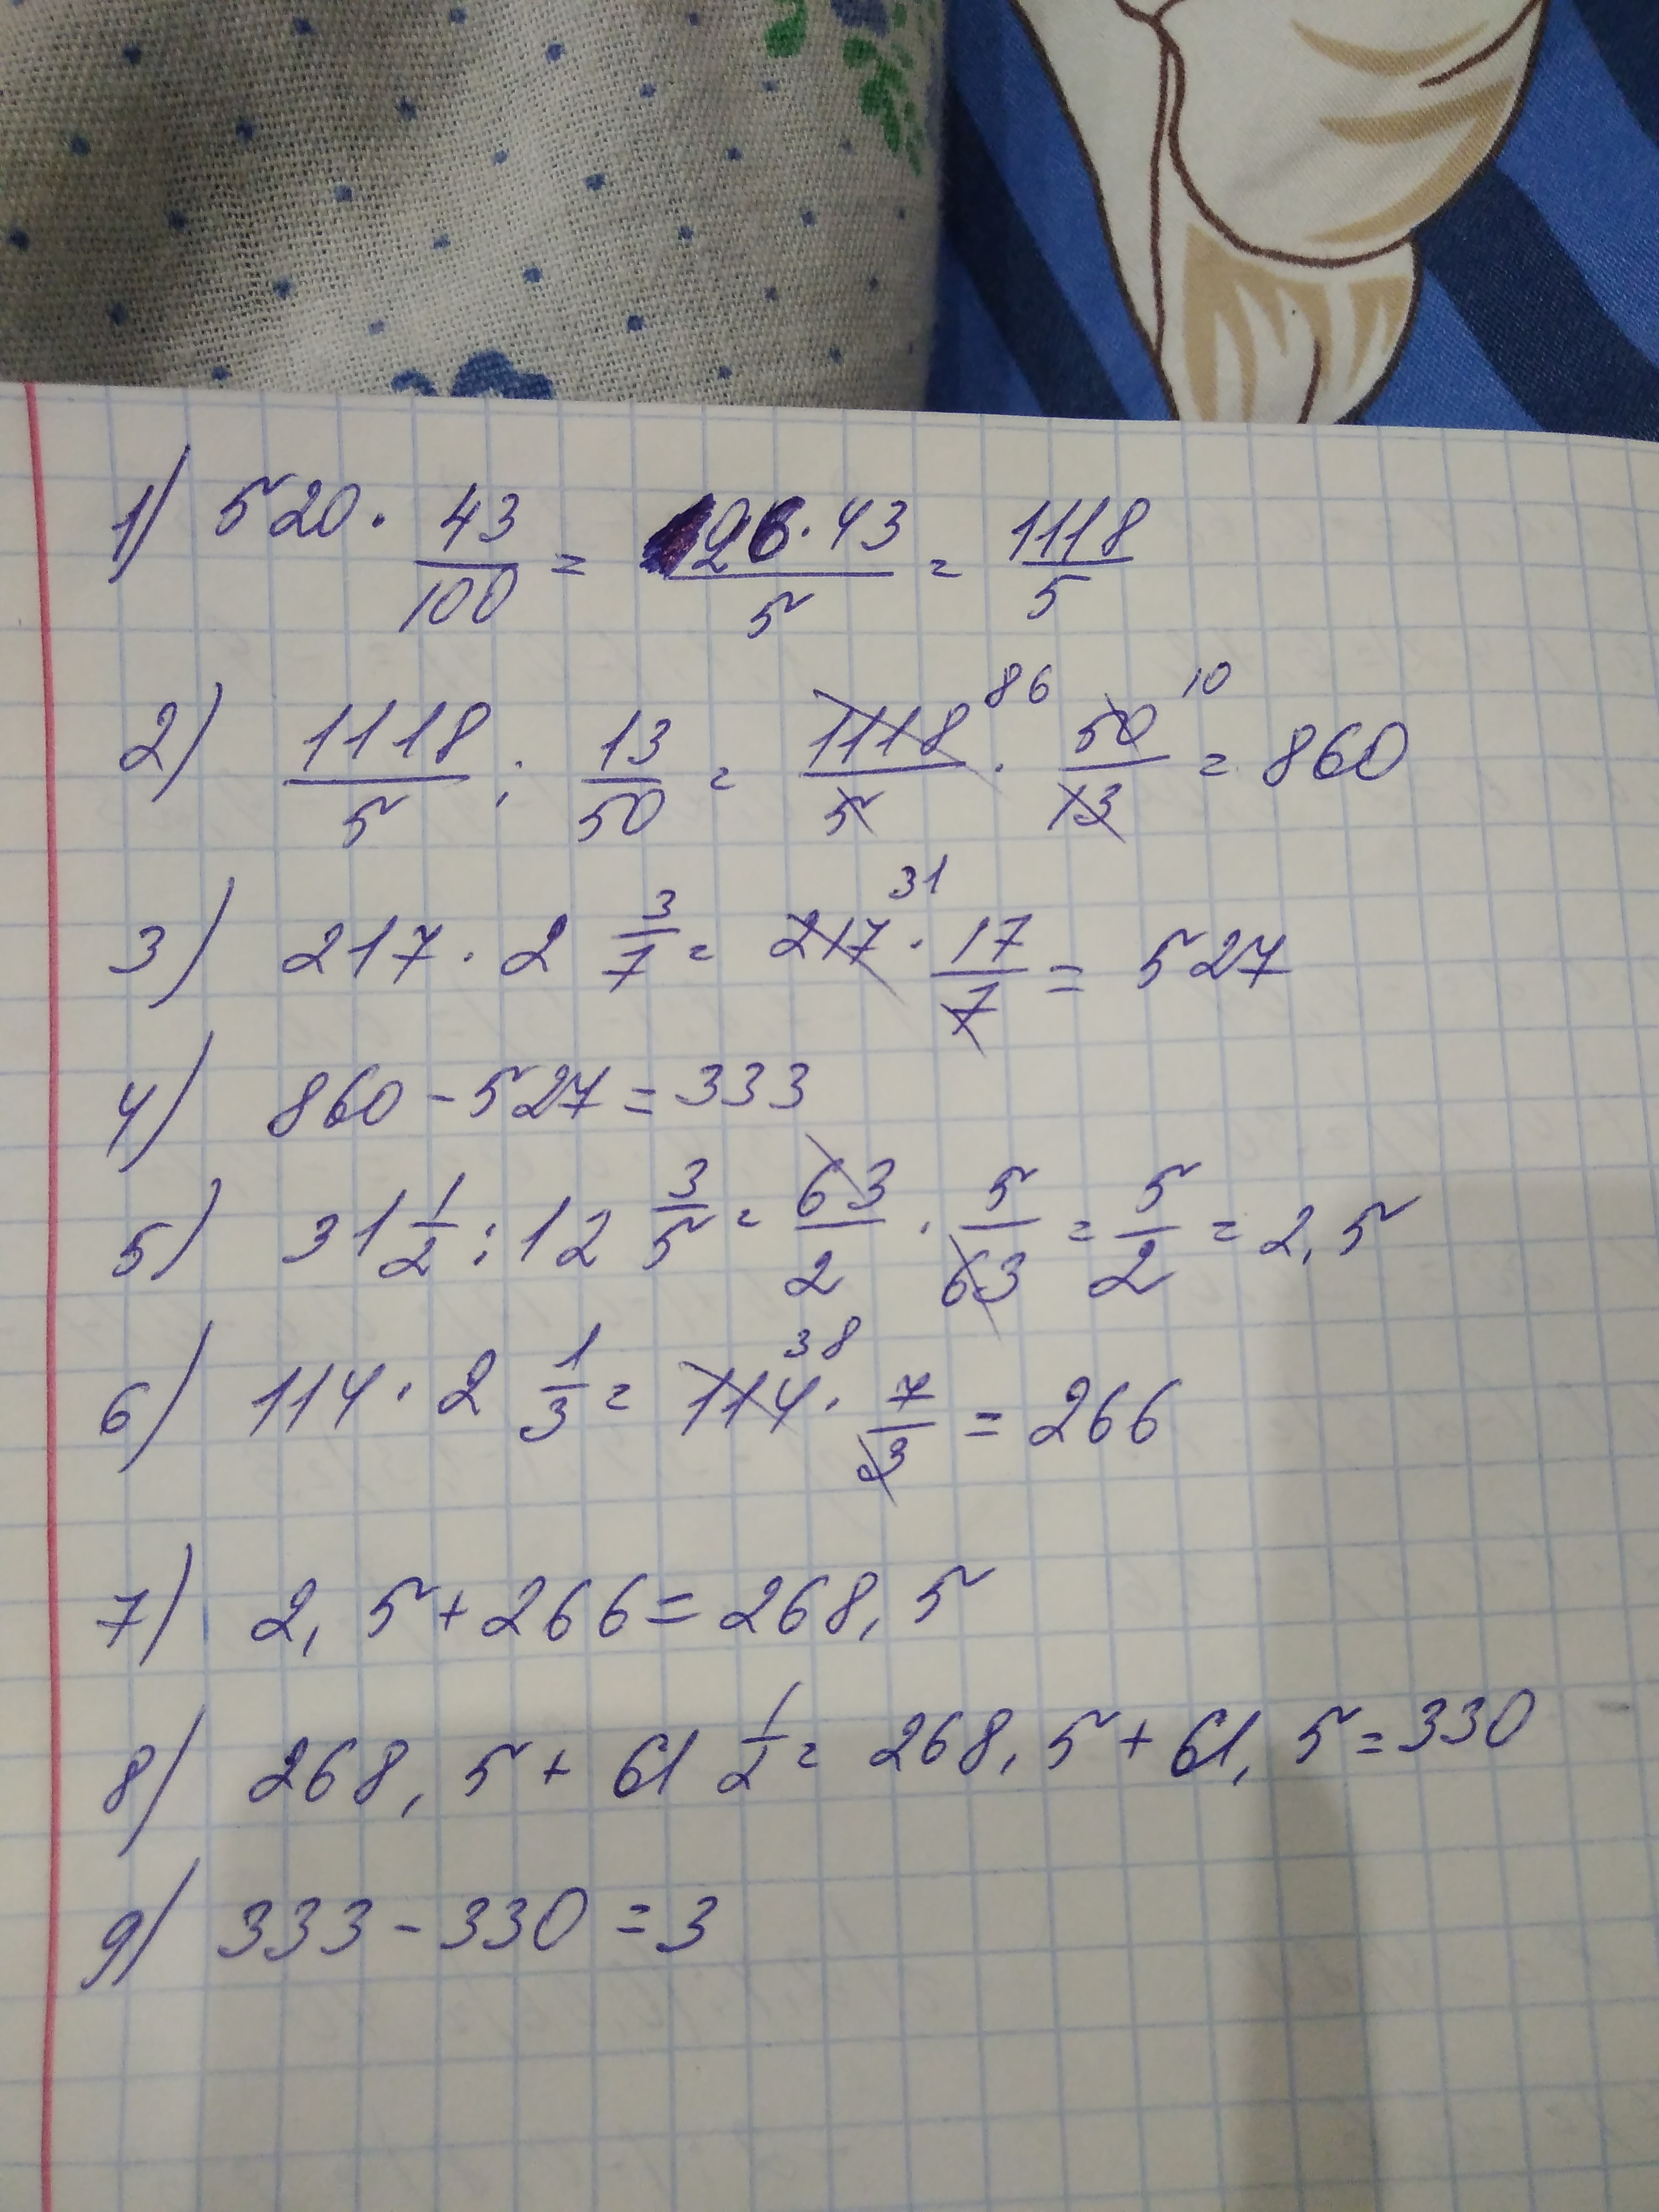 1) 520 · 43/100 = 26·43/5 = 1118/5
2) 1118/5 : 13/50 = 1118/5 86 · 50/13 10 = 860
3) 217 · 2 3/7 = 217 31 · 17/7 = 527
4) 860 - 527 = 333
5) 31 1/2 : 12 3/5 = 63/2 · 5/63 = 5/2 = 2,5
6) 114 · 2 1/3 = 114 38 · 7/3 = 266
7) 2,5 + 266 = 268,5
8) 268,5 + 61 1/2 = 268,5 + 61,5 = 330
9) 333 - 330 = 3